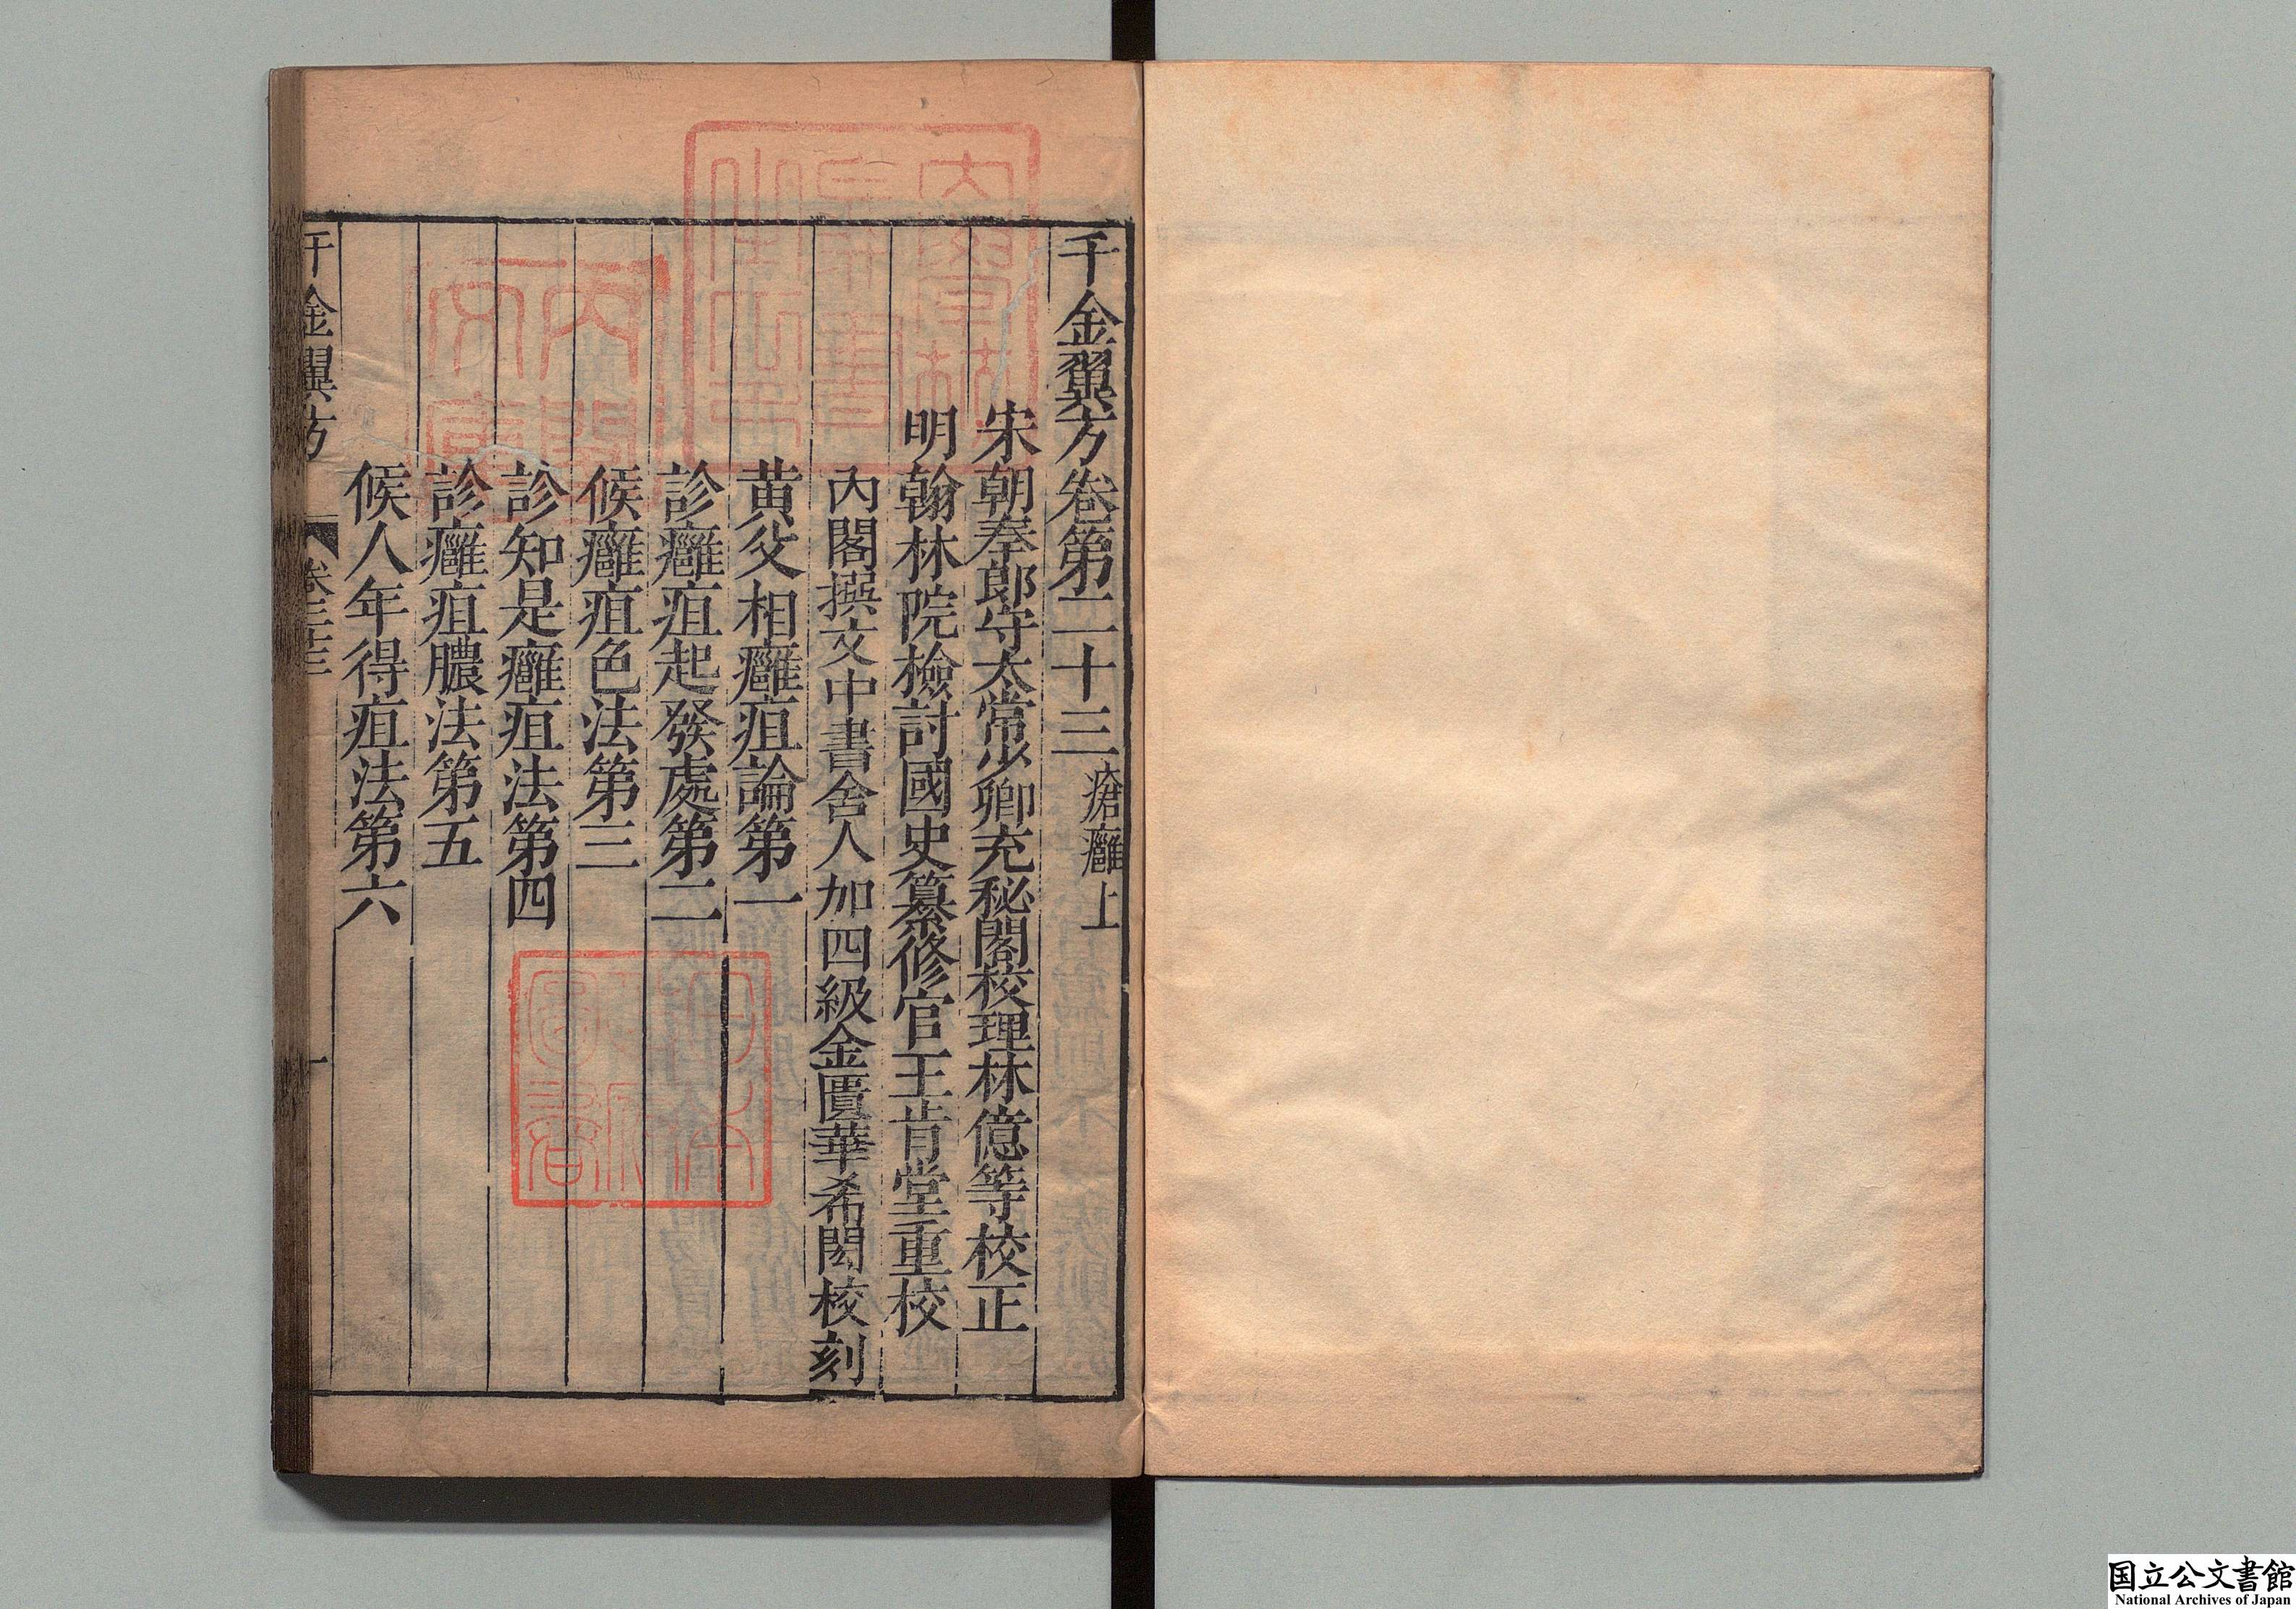 千金翼方卷第二十三瘡癰上
宋朝奉郎守太常少卿充秘閣校理林億等校正
明翰林院檢討國史纂修官王肯堂重校
內閣撰文中書舍人加四級金匱華希閎校刻
黃父相癰疽論第一
診癰疽起發處第二
候癰疽色法第三
診知是癰疽法第四
診癰疽膿法第五
候人年得疽法第六
千金翼方 卷二十三 一
国立公文書館
National Archives of Japan